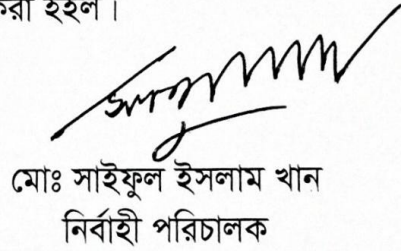 করা হইল।
মোঃ সাইফুল ইসলাম খান
নির্বাহী পরিচালক